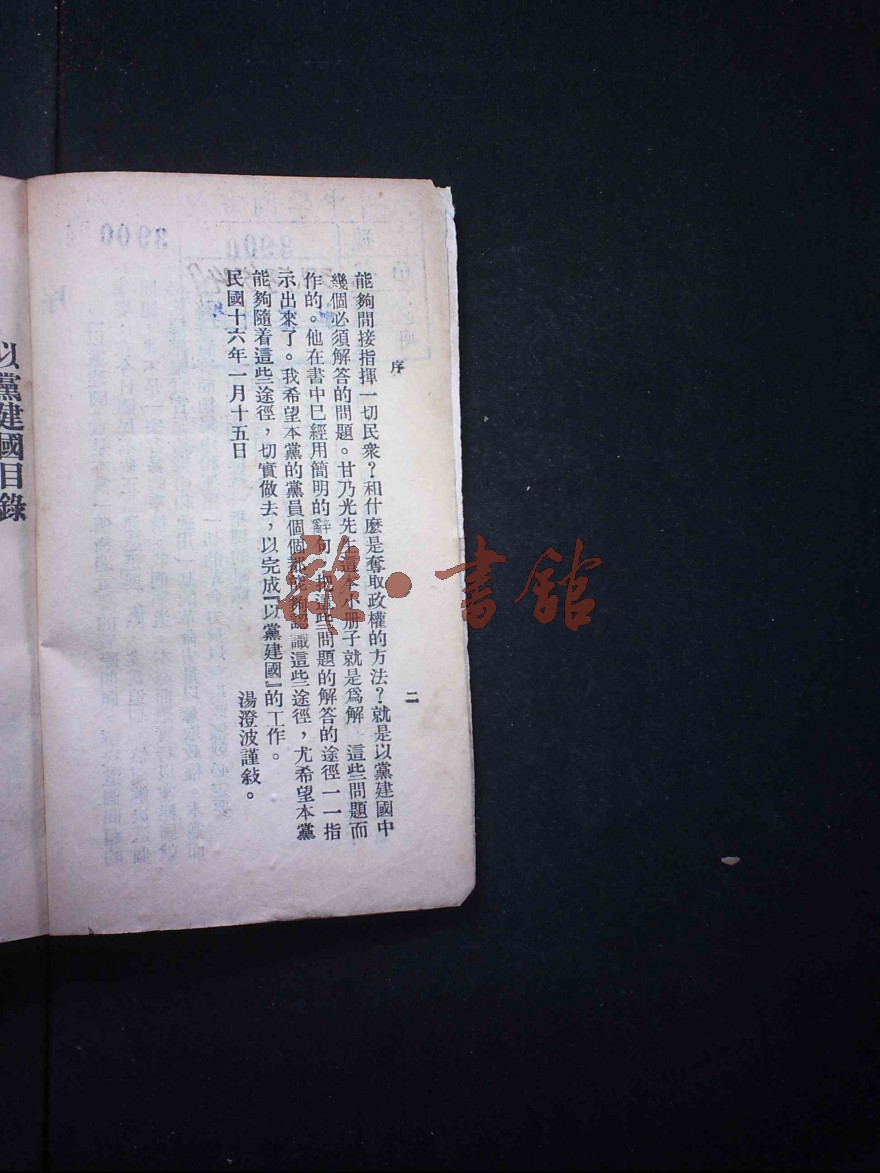 序
二
能夠間接指揮一切民衆？和什麼是奪取政權的方法？就是以黨建國中
幾個必須解答的問題。甘乃光先生這本小册子就是爲解 這些問題而
作的。他在書中已經用簡明的辭句，把這些問題的解答的途徑一一指
示出來了。我希望本黨的黨員個個都能夠認識這些途徑，尤希望本黨
能夠隨着這些途徑，切實做去，以完成『以黨建國』的工作。
湯澄波謹敍。
民國十六年一月十五日
以黨建國目錄
雜·書館
3900
3900